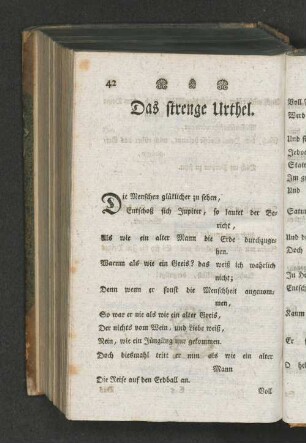 42
Das strenge Urthel.
Die Menschen glüklicher zu sehen,
Entschoß sich Jupiter, so lautet der Be-
richt,
Als wie ein alter Mann die Erde durchzuge-
hen.
Warum als wie ein Greis? das weiß ich wahrlich
nicht;
Denn wenn er sonst die Menschheit angenom-
men,
So war er nie als wie ein alter Greis,
Der nichts vom Wein, und Liebe weiß,
Nein, wie ein Jüngling nur gekommen.
Doch diesmahl tritt er nun als wie ein alter
Mann
Die Reise auf den Erdball an.
Voll